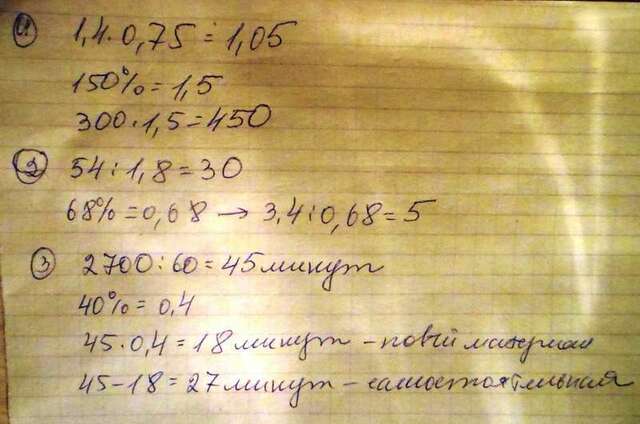 1 1,4·0,75=1,05
150%=1,5
300·1,5=450
2 54:1,8=30
68%=0,68 → 3,4:0,68=5
3 2700:60=45 минут
40%=0,4
45·0,4=18 минут - новый материал
45-18=27 минут - самостоятельная